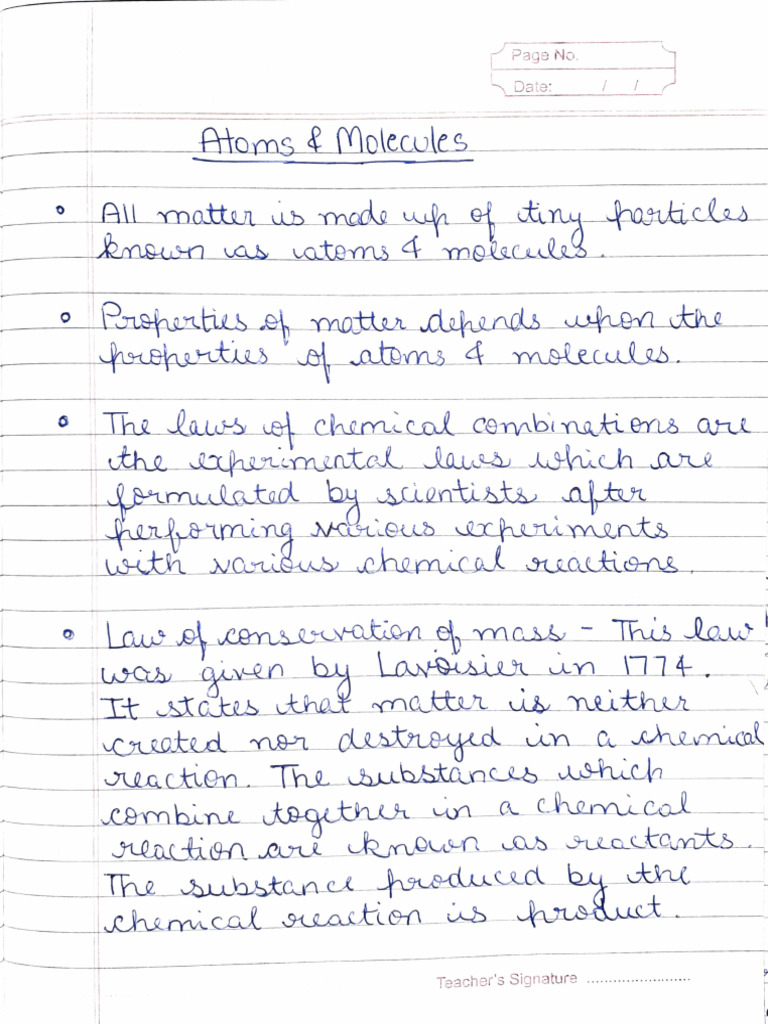 Page No.
Date: / /
Atoms & Molecules
All matter is made up of tiny particles
known as atoms & molecules.
Properties of matter depends upon the
properties of atoms & molecules.
The laws of chemical combinations are
the experimental laws which are
formulated by scientists after
performing various experiments
with various chemical reactions.
Law of conservation of mass - This law
was given by Lavoisier in 1774.
It states that matter is neither
created nor destroyed in a chemical
reaction. The substances which
combine together in a chemical
reaction are known as reactants.
The substance produced by the
chemical reaction is product.
Teacher's Signature ........................